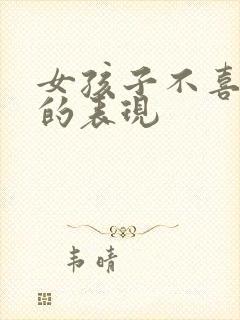 女孩子不喜
的表现
韦晴